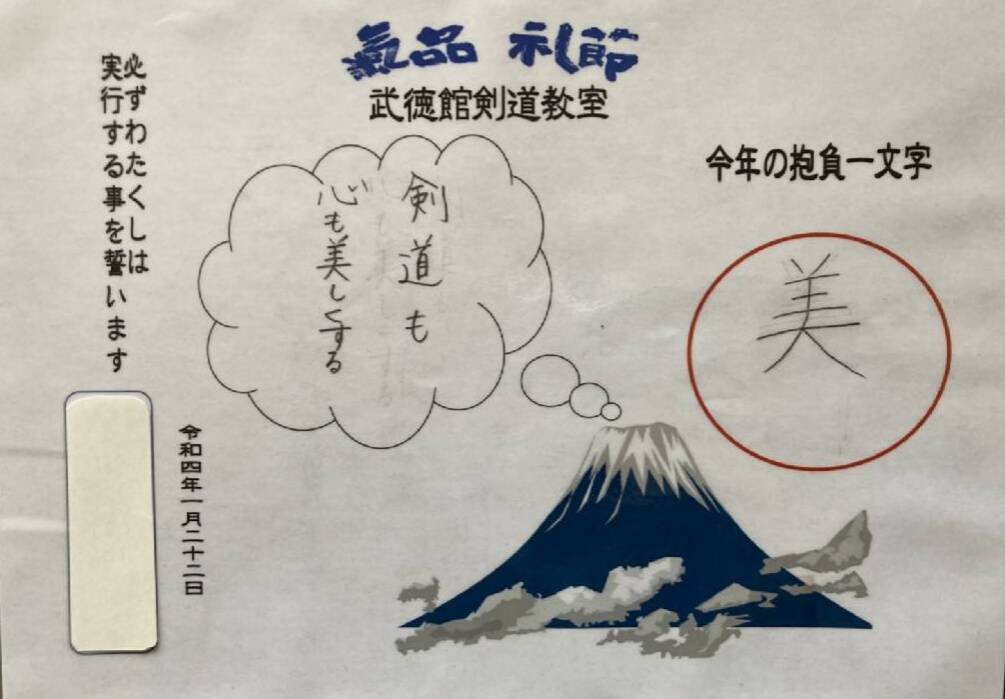 氣品 礼節
武徳館剣道教室
今年の抱負一文字
美
剣道も
心も美しくする
必ずわたくしは
実行する事を誓います
令和四年一月二十二日